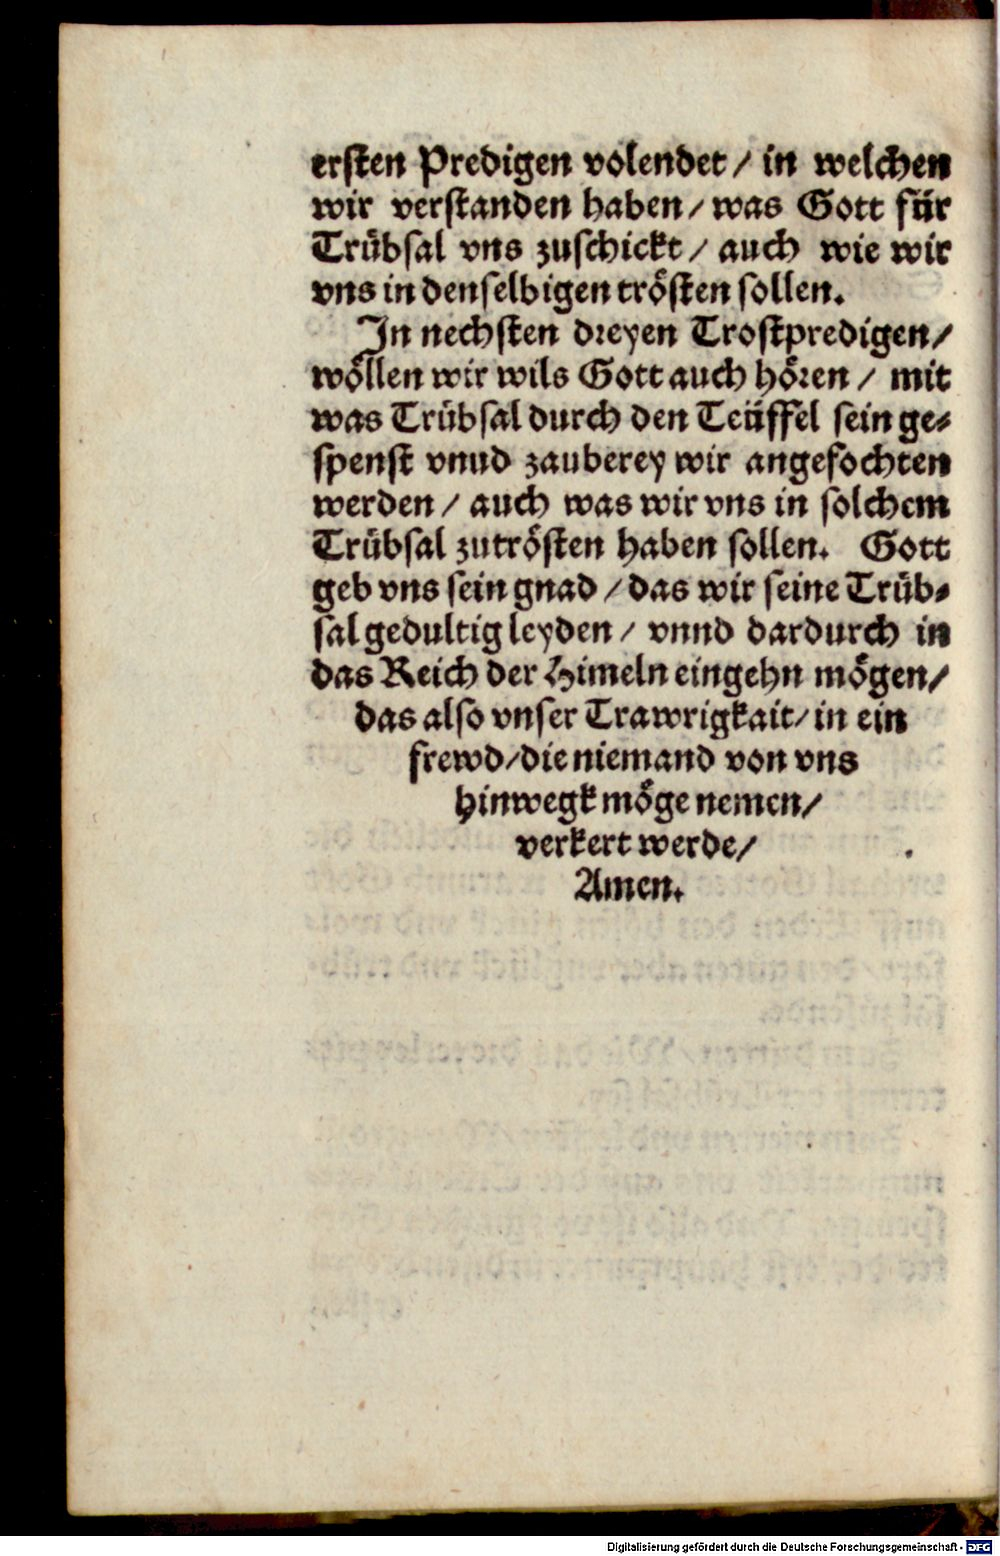 ersten Predigen volendet / in welchen
wir verstanden haben / was Gott für
Trübsal vns zuschickt / auch wie wir
vns in denselbigen trösten sollen.
In nechsten dreyen Trostpredigen /
wöllen wir wils Gott auch hören / mit
was Trübsal durch den Teüffel sein ge-
spenst vnnd zauberey wir angefochten
werden / auch was wir vns in solchem
Trübsal zutrösten haben sollen. Gott
geb vns sein gnad / das wir seine Trüb-
sal gedultig leyden / vnnd dardurch in
das Reich der Himeln eingehn mögen /
das also vnser Trawrigkait / in ein
frewd / die niemand von vns
hinwegk möge nemen /
verkert werde /
Amen.
Digitalisierung gefördert durch die Deutsche Forschungsgemeinschaft - DFG